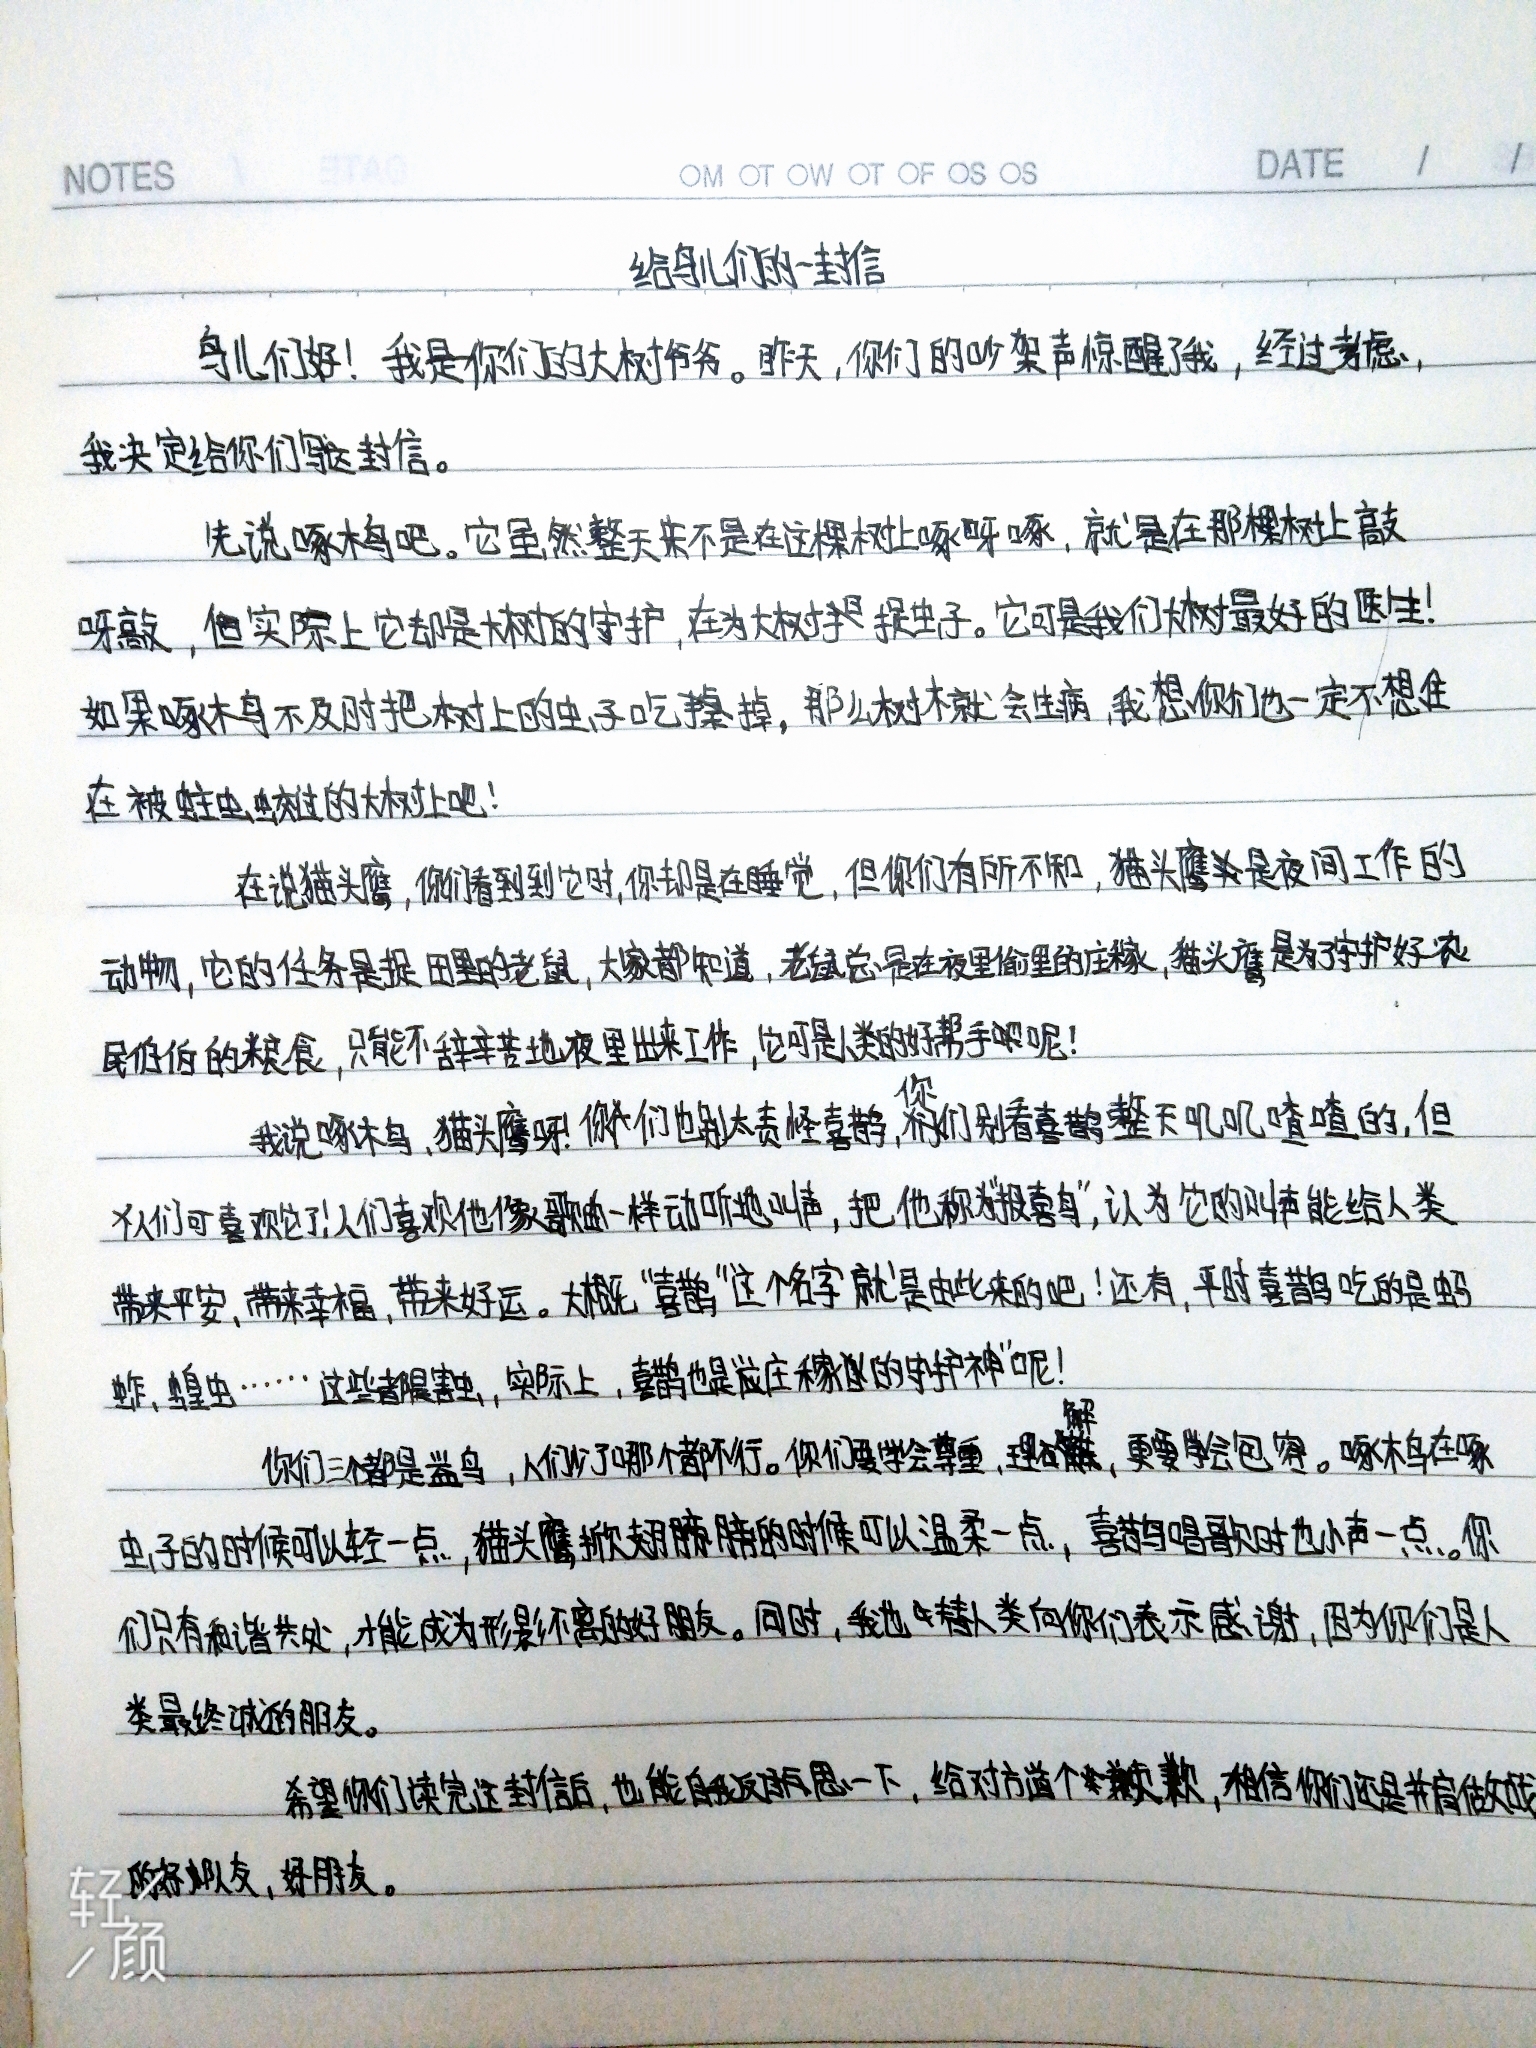 NOTES OM OT OW OT OF OS OS DATE / /
给鸟儿们的一封信
鸟儿们好！我是你们的大树爷爷。昨天，你们的吵架声惊醒了我，经过考虑，
我决定给你们写这封信。
先说啄木鸟吧。它虽然整天来不是在这棵树上啄呀啄，就是在那棵树上敲
呀敲，但实际上它却是大树的守护，在为大树捉虫子。它可是我们大树最好的医生！
如果啄木鸟不及时把树上的虫子吃掉，那么树木就会生病，我想你们也一定不想住
在被蛀虫蛟过的大树上吧！
在说猫头鹰，你们看到到它时，你却是在睡觉，但你们有所不和，猫头鹰是夜间工作的
动物，它的任务是捉田里的老鼠，大家都知道，老鼠总是在夜里偷里的庄稼，猫头鹰是为了守护好农
民伯伯的粮食，只能不辞辛苦地夜里出来工作，它可是人类的好帮手呢！
我说啄木鸟、猫头鹰呀！你们也别太责怪喜鹊，你们别看喜鹊整天叽叽喳喳的，但
人们可喜欢它了！人们喜欢他像歌曲一样动听地叫声，把他称为“报喜鸟”，认为它的叫声能给人类
带来平安、带来幸福、带来好运。大概“喜鹊”这个名字就是由此来的吧！还有，平时喜鹊吃的是蚂
蚱、蝗虫……这些都是害虫，实际上，喜鹊也是庄稼的守护神”呢！
你们三个都是益鸟，人们少了哪个都不行。你们要学会尊重，理解，更要学会包容。啄木鸟在啄
虫子的时候可以轻一点，猫头鹰掀翅膀的时候可以温柔一点，喜鹊唱歌时也小声一点。你
们只有和谐共处，才能成为形影不离的好朋友。同时，我也替人类向你们表示感谢，因为你们是人
类最终诚的朋友。
希望你们读完这封信后，也能自我反思一下，给对方道个歉，相信你们还是并肩做战
的好队友，好朋友。
轻颜